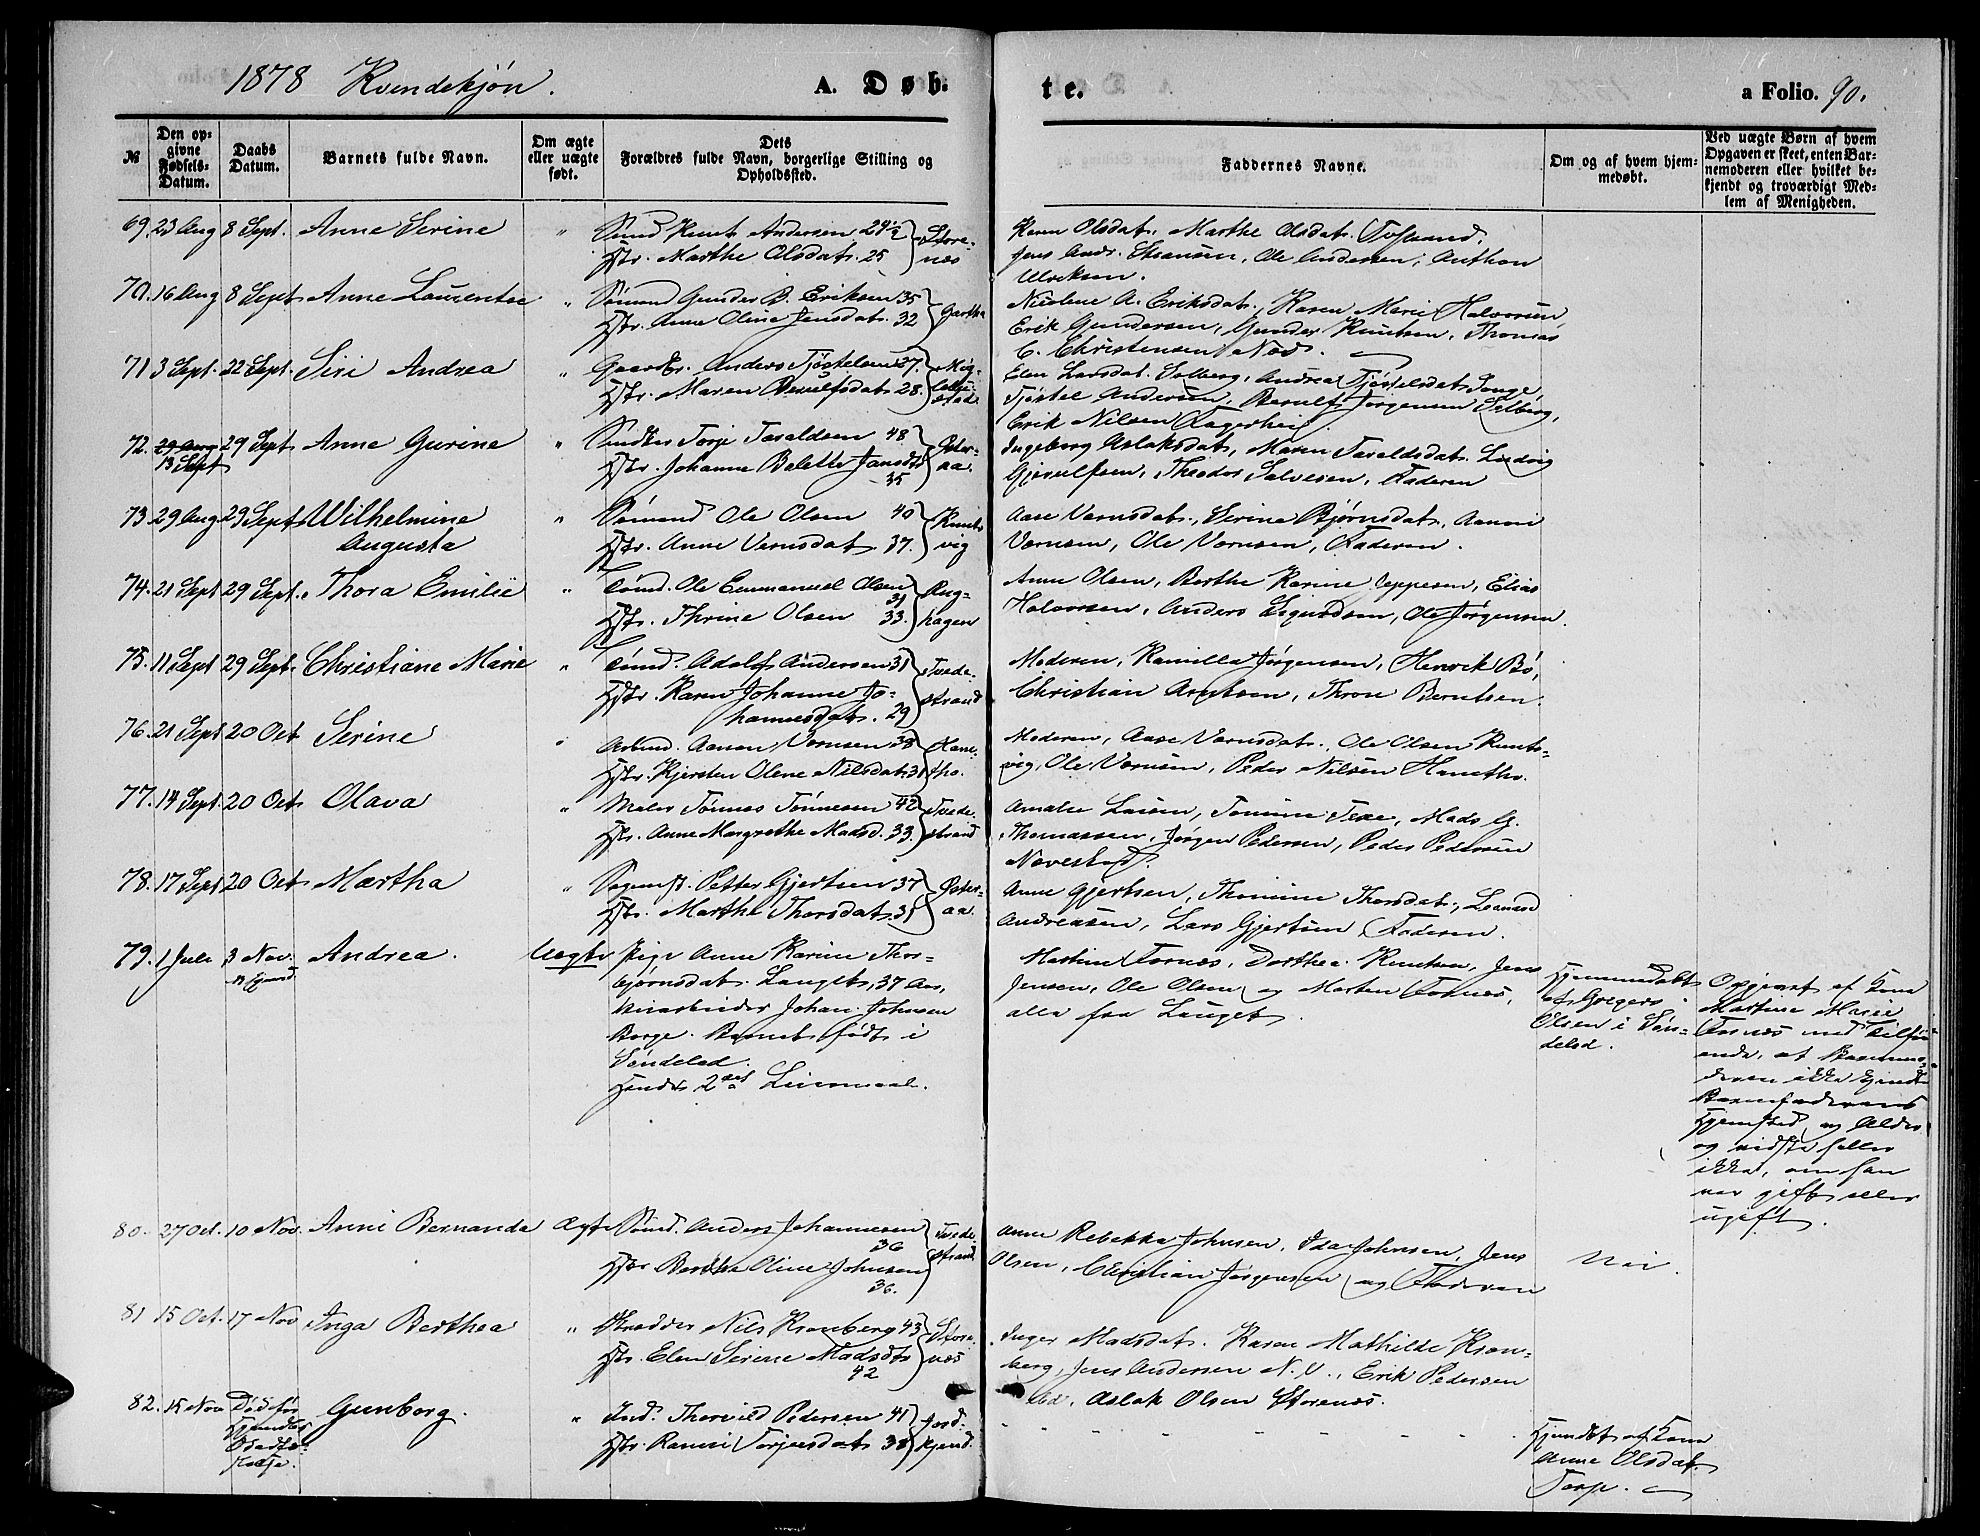 1878 Kvendekjøn. A. Døb.
te. a Folio. 90.
№ Den opgivne Fødsels-Datum. Daabs Datum. Barnets fulde Navn. Om ægte eller uægte født. Dets Forældres fulde Navn, borgerlige Stilling og Opholdssted.
Faddernes Navne. Om og af hvem hjemmedøbt. Ved uægte Børn af hvem Opgaven er skeet, enten Barnemoderen eller hvilket bekjendt og troværdigt Medlem af Menigheden.
69. 23 Aug 8 Sept. Anne Serine " Knut Andersen 24½ Store-
Hstr. Marthe Olsdat. 25 næs
Karen Olsdat. Marthe Olsdat.
Jens Andr. Ole Andersen, Anthon
Ulriksen.
70. 16 Aug 8 Sept Anne Laurentse " Sømand Gunder B. Eriksen 35 Gartha
Hstr. Anne Oline Jensdat. 32
Nicoline A. Eriksdat., Karen Marie Halvorsen
Erik Gundersen, Gunder Knutsen, Thomas
C. Christensen Næs.
71 3 Sept. 22 Sept. Siri Andrea " Gaardbr. Anders Tjøstelsen 37.
Hstr. Maren Berulfsdat. 28.
Elen Larsdat. Solberg, Andrea Tjøstelsdat. Songe,
Tjøstel Andersen, Berulf Jørgensen Solberg,
Erik Nilsen Fagerhei
72. 29 Aug 29 Sept Anne Gurine " Torje Taraldsen 48 Øster-
13 Sept Hstr. Johanne Belette Jansdt aa.
35
Ingeborg Aslaksdat, Maren Taraldsdat. Ludvig
Gjerulfsen, Theodor Salvesen, Faderen
73. 29 Aug 29 Sept Wilhelmine " Sømand Ole Olsen 40 Knuts-
Augusta Hstr. Anne Vernsdat. 37. vig
Aase Vernsdat., Serine Bjørnsdat, Aanon
Vernsen, Ole Vernsen, Faderen.
74. 21 Sept 29 Sept. Thora Emilie " Sømd. Ole Emmanuel Olsen
31
Hstr. Thrine Olsen 33. hagen
Anne Olsen, Berthe Karine Jeppesen, Elias
Halvorsen, Anders Sigurdsen, Ole Jørgensen.
75. 11 Sept 29 Sept. Christiane Marie " Sømd. Adolf Andersen 31 Tvede-
Hstr. Karen Johanne Jo- strand
hannesdat. 29
Moderen, Kamilla Jørgensen, Henrik Bø,
Christian Arntsen, Thron Berntsen.
76. 21 Sept 20 Oct Serine " Arbmd. Aanon Vernsen 38 Hane-
Hstr. Kjersten Olene Nilsdat 31 tho.
Moderen, Aase Vernsdat., Ole Olsen Knuts-
vig, Ole Vernsen, Peder Nilsen Hanetho.
77. 14 Sept. 20 Oct Olava " Maler Tønnes Tønnesen 42 Tvede-
Hstr. Anne Margrethe Madsd. 33. strand
Amalie Mads G.
Thomassen, Jørgen Pedersen, Peder Pedersen
78. 17 Sept 20 Oct Martha " Petter Gjertsen 37 Øster-
Hstr. Marthe Thorsdat 31 aa.
Anne Gjertsen, Thomine Thorsdat., Leonard
Andreassen, Lars Gjertsen, Faderen.
79. 1 Juli 3 Nov. Andrea. Uægte Pige Anne Karine Thor-
bjørnsdat. Langet, 37 Aar,
Johan Johnsen
Borge. Barnet født i
Søndeled.
Hendes 2det Leiermaal.
Martine Fosnæs, Dorthea Knutsen, Jens
Jensen, Ole Olsen og Morten Fosnæs,
alle fra Langet.
Hjemmedøbt
af Gregers
Olsen i Søn-
deled.
Opgivet af Kone
Martine Marie
Fosnæs med Tilføi-
ende, at Barnemo-
deren ikke kjendte
Barnefaderens
Hjemsted og Alder
og vidste heller
ikke, om han
var gift eller
ugift.
80. 27 Oct. 10 Nov. Anne Bernanda Ægte Sømd. Anders Johannesen Tvede-
36 strand
Hstr. Berthe Oline Johnsen
36.
Anne Rebekka Johnsen, Ida Johnsen, Jens
Olsen, Christian Jørgensen og Faderen
Nei.
81 15 Oct. 17 Nov Inga Berthea " Skrædder Nils Kronberg 43 Store-
Hstr. Elen Serine Madsdt næs
42
Inger Madsdat. Karen Mathilde Kron-
berg, Jens Andersen N.V., Erik Pedersen
Aslak Olsen Storenæs.
82. 15 Nov Død før Gunborg. " Ind. Thorvild Pedersen 41
Hstr. Torjusdat 38
Hjemdøbt af Kone
Anne Olsdat.
Torp.